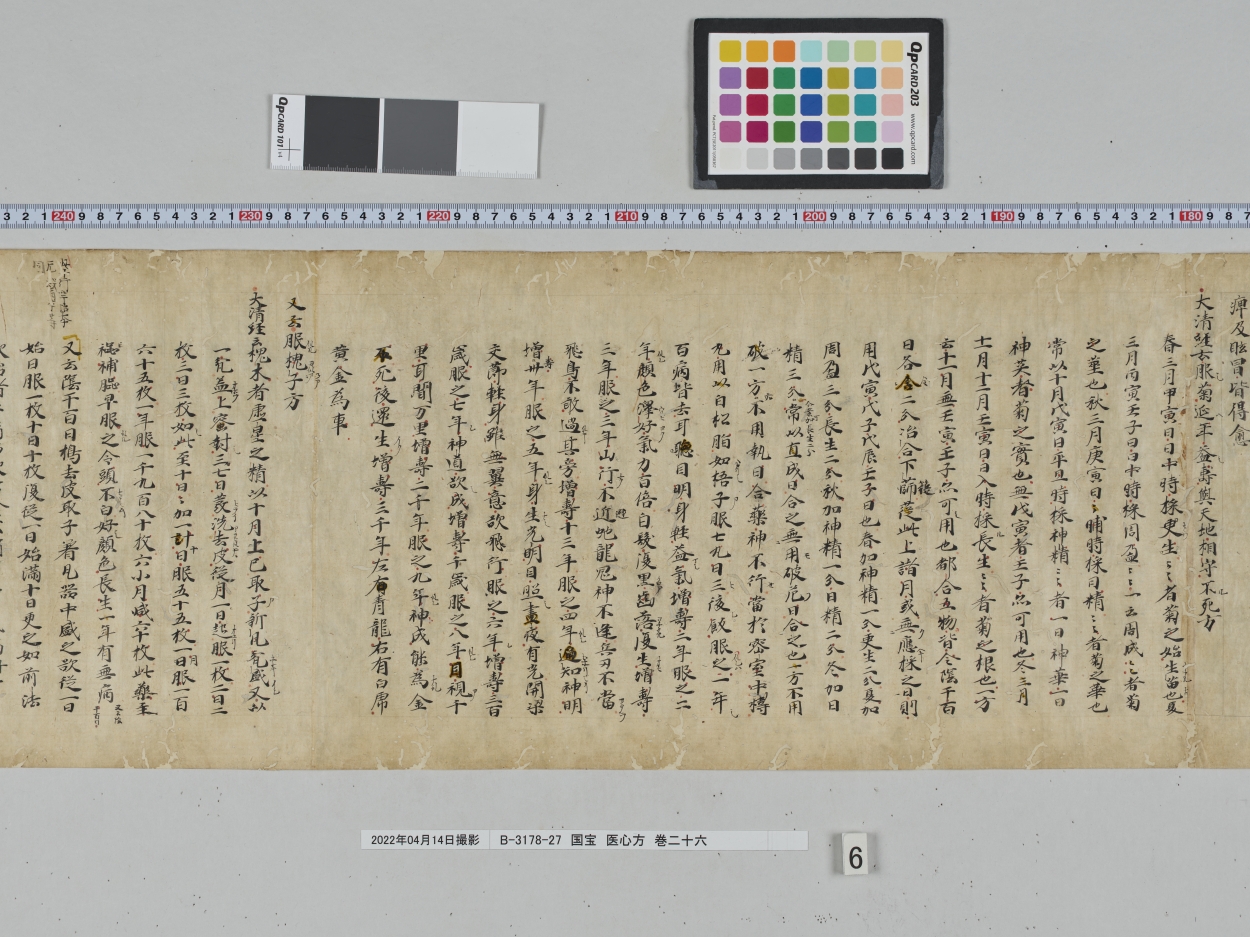 痺及眩冒皆得愈
大清経云服菊延年益壽與天地相守不死方
春三月甲寅日日中時採更生々々者菊之始生苗也夏
三月丙寅壬子日日中時採周盈々々一云周成々々者菊
之華也秋三月庚寅日晡時採日精々々者菊之華也
常以十月戊寅日平旦時採神精々々者一曰神華一曰
神英者菊之實也無戊寅者壬子亦可用也冬三月
十一月十二月壬寅日日入時採長生々々者菊之根也一方
云十一月無壬寅壬子亦可用也都合五物皆令陰干百
日各令二分治合下篩從此上諸月或無應採之日則
用戊寅戊子戊辰壬子日也春加神精一分更生二分夏加
周盈三分長生二分秋加神精一分日精二分冬加日
精三分常以直成日合之無用破危日合之也一方不用
破一方不用執日合藥神不行當於密室中擣
丸用以白松脂如梧子服七丸日三後飯服之一年
百病皆去耳聰目明身輕益氣增壽二年服之二
年顏色澤好氣力百倍白髮復黑齒落復生增壽
三年服之三年山行不避虵龍鬼神不逢兵刃不當
飛鳥不敢過其旁增壽十三年服之四年通知神明
增壽卌年服之五年身生光明目照晝夜有光開梁
交節輕身雖無翼意欲飛行服之六年增壽三百
歲服之七年神道欲成增壽千歲服之八年目視千
里耳聞万里增壽二千年服之九年神成能為金
石死後還生增壽三千年左有青龍右有白虎
黃金為車
又云服槐子方
大清経云槐木者虛星之精以十月上巳取子新瓦瓮盛又以
一瓮蓋上密封三七日發洗去皮從月一日起服一枚二日二
枚三日三枚如此至十日々加一計日服五十五枚一月服一百
六十五枚一年服一千九百八十枚六小月減六十枚此藥至
補腦早服之令頭不白好顏色長生一年有無病
又云陰干百日擣去皮取子着瓦器中盛之欲從一日
始日服一枚十日十枚復從一日始滿十日更之如前法
2022年04月14日撮影 B-3178-27 国宝 医心方 巻二十六
6
QPCARD 101
QPCARD 203
www.qpcard.com